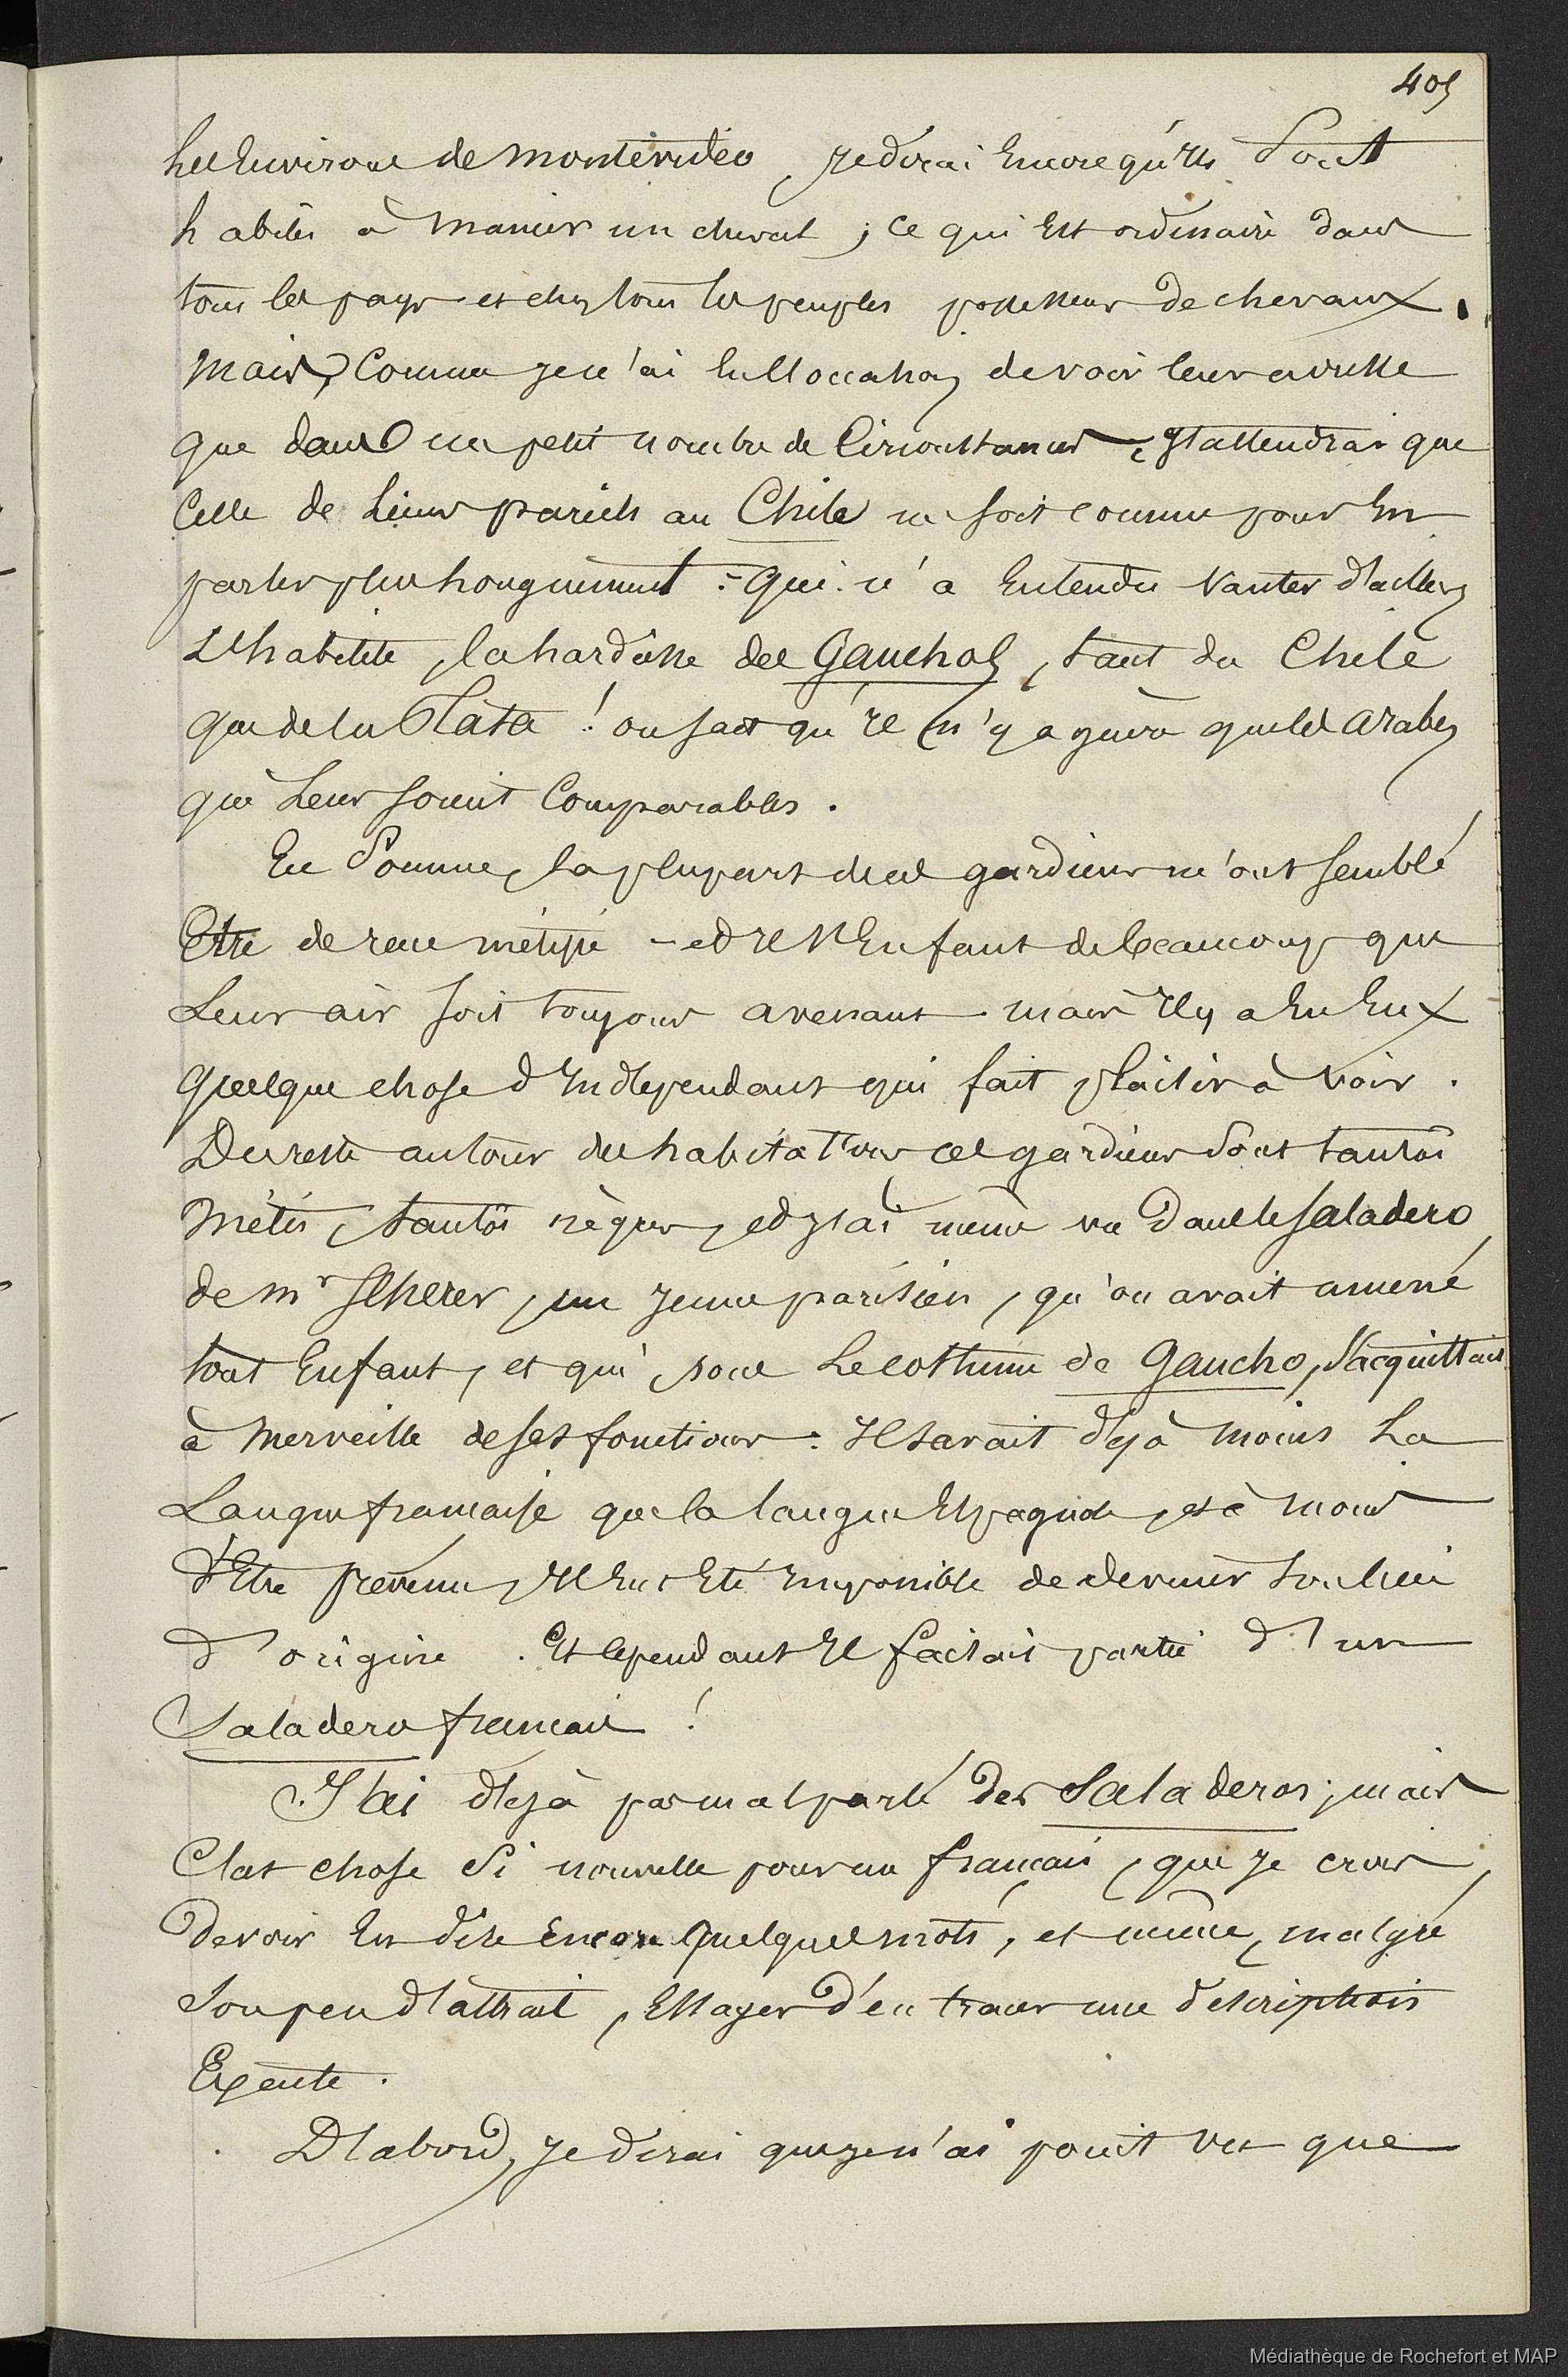 405
les Environs de montévidéo, je dirai Encore qu'Ils sont
habiles à manier un cheval ; ce qui Est ordinaire dans
tous les pays et chez tous les peuples possesseurs de chevaux.
Mais, Comme je n'ai Eu l'occasion de voir leur adresse
que dans un petit nombre de Circonstances, J'attendrai que
Celle de Leurs pareils au Chile me soit connue pour En
parler plus Longuement : Qui n'a Entendu Vanter d'ailleurs
L'habileté, la hardiesse des Gauchos, tant du Chile
que de la Plata ! on sait qu'Il n'y a guère que les Arabes
qui Leur soient Comparables.
En Somme, la plupart de ces gardiens m'ont semblé
Etre de race métisse – et Il s'En faut de beaucoup que
Leur air soit toujours avenant mais Il y a En Eux
quelque chose d'Indépendant qui fait plaisir à Voir.
Du reste autour des habitations ces gardiens sont tantôt
Métis, tantôt nègres, et J'ai même vu dans le Saladero
de Mr Scherer, un Jeune parisien, qu'on avait amené
tout Enfant, et qui sous Le costume de Gaucho, s'acquittait
à Merveille de ses fonctions : Il savait déjà moins La
Langue française que la langue Espagnole, et à moins
d'Etre prévenu, Il Eut Eté Impossible de deviner son lieu
d'origine. Et cependant Il faisait partie d'un
Saladero français !
J'ai déjà pas mal parlé des Saladeros ; mais
C'est chose si nouvelle pour un français, que je crois
devoir En dire Encore quelques mots, et même, malgré
Son peu d'attrait, Essayer d'en tracer une description
Exacte.
D'abord, je dirai que je n'ai point vu que
Médiathèque de Rochefort et MAP